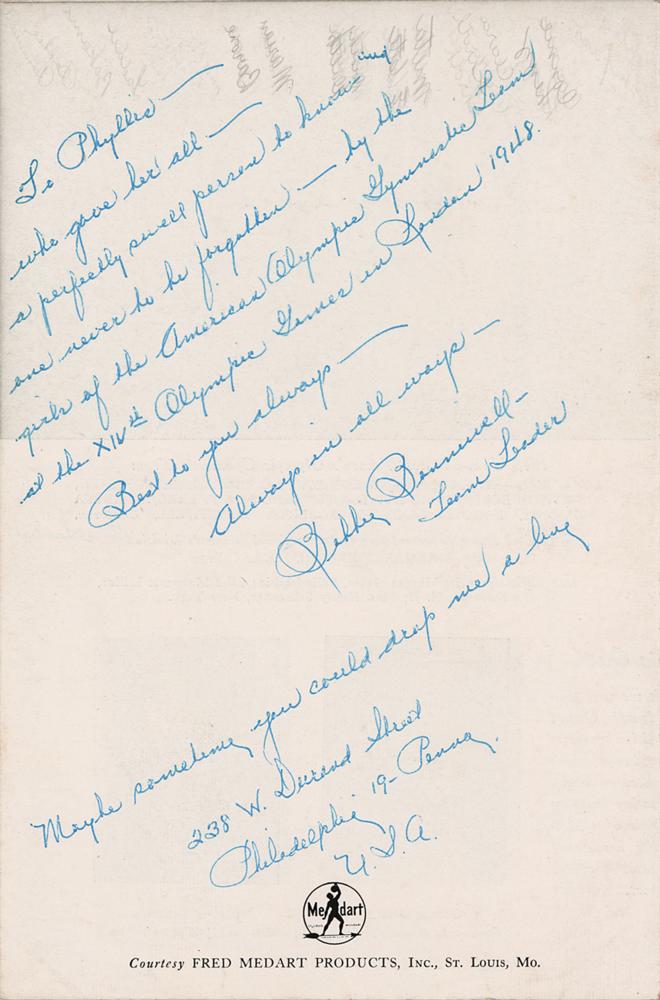 To Phyllis —
who gave her all —
a perfectly swell person to know — and
one never to be forgotten — by the
girls of the American Olympic Gymnastic Team
at the XIVth Olympic Games in London 1948.
Best to you always —
Always in all ways —
Bobbie Bonniwell —
Team Leader
Maybe sometime you could drop me a line
238 W. Durand Street
Philadelphia 19 - Penna.
U.S.A.
Me dart
Courtesy FRED MEDART PRODUCTS, INC., ST. LOUIS, MO.